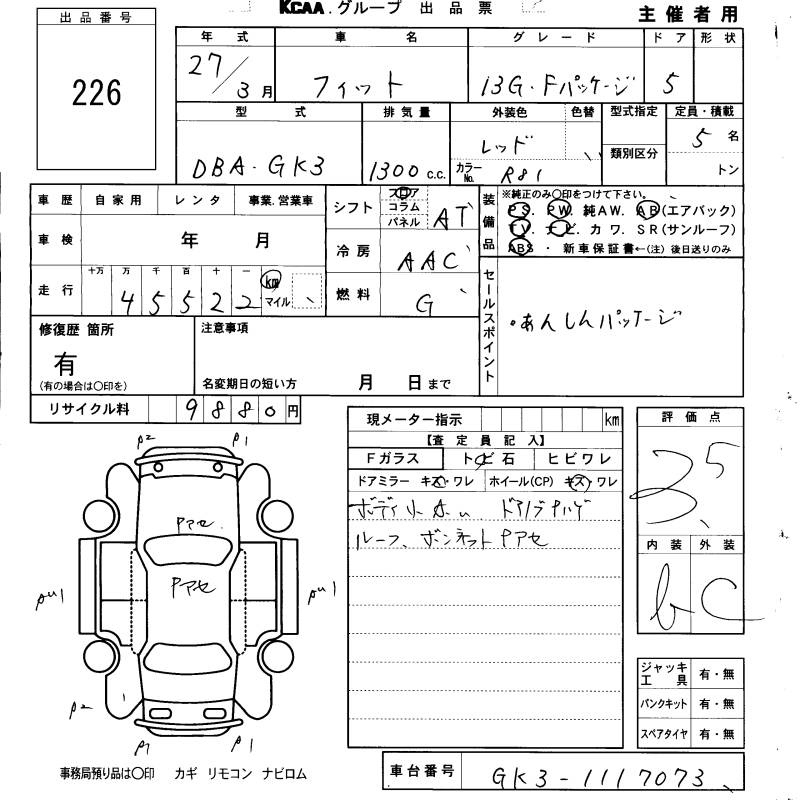 KCAA.グループ 出品票
主催者用
出品番号
226
年式 車名 グレード ドア 形状
27/3月 フィット 13G・Fパッケージ 5
型式 排気量 外装色 色替 型式指定 定員・積載
DBA-GK3 1300 c.c. レッド カラーNo. R81 類別区分 5名
トン
車歴 自家用 レンタ 事業.営業車
車検 年 月
走行 十万 万 千 百 十 一 km マイル
45522
シフト フロア コラム パネル AT
冷房 AAC
燃料 G
装備品
※純正のみ〇印をつけて下さい。
PS. PW. 純AW. AB(エアバック)
TV. ナビ. カワ. SR(サンルーフ)
ABS ・ 新車保証書←(注) 後日送りのみ
セールスポイント
・あんしんパッケージ
修復歴 箇所
有
(有の場合は〇印を)
注意事項
名変期日の短い方 月 日まで
リサイクル料 9880円
現メーター指示 km
【査定員記入】
Fガラス トビ石 ヒビワレ
ドアミラー キズ・ワレ ホイール(CP) キズ・ワレ
ルーフ、ボンネットPアセ
評価点
3.5
内装 外装
b C
ジャッキ工具 有・無
パンクキット 有・無
スペアタイヤ 有・無
P2 P1
Pアセ
Pアセ
P2
P1 P1
事務局預り品は〇印 カギ リモコン ナビロム
車台番号 GK3-1117073